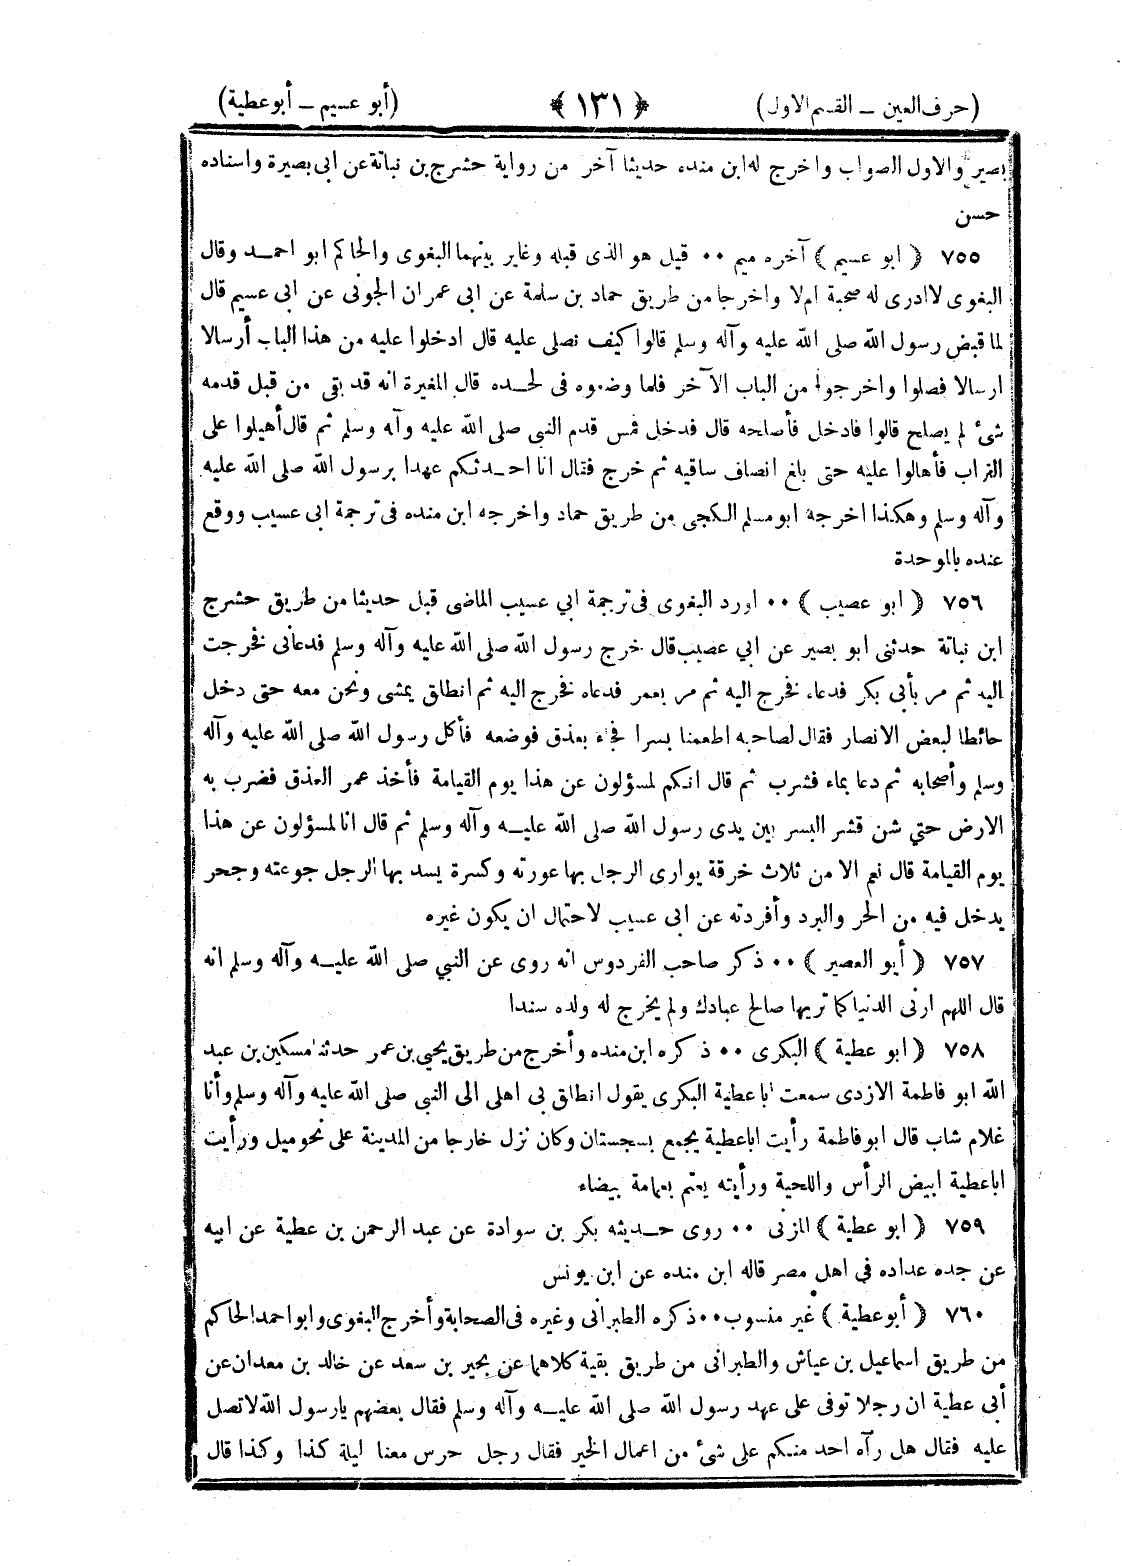 (حرف العين ــ القسم الاول) ﴿ ١٣١ ﴾ (أبو عسيم ــ أبو عطية)
بصير والاول الصواب واخرج له ابن منده حديثا آخر من رواية حشرج بن نباتة عن ابى بصيرة واسناده
حسن
٧٥٥ ﴿ ابو عسيم ﴾ آخره ميم ٠٠ قيل هو الذى قبله وغاير بينهما البغوى والحاكم ابو احمد وقال
البغوى لا ادرى له صحبة ام لا واخرجا من طريق حماد بن سلمة عن ابى عمران الجونى عن ابى عسيم قال
لما قبض رسول الله صلى الله عليه وآله وسلم قالوا كيف نصلى عليه قال ادخلوا عليه من هذا الباب أرسالا
ارسالا فصلوا واخرجوا من الباب الآخر فلما وضوه فى لحده قال المغيرة انه قد بقى من قبل قدمه
شئ لم يصلح قالوا فادخل فأصلحه قال فدخل فمس قدم النبى صلى الله عليه وآله وسلم ثم قال أهيلوا على
التراب فأهالوا عليه حتى بلغ انصاف ساقيه ثم خرج فقال انا احدثكم عهدا برسول الله صلى الله عليه
وآله وسلم وهكذا اخرجه ابو مسلم الكجى من طريق حماد واخرجه ابن منده فى ترجمة ابى عسيب ووقع
عنده بالموحدة
٧٥٦ ﴿ ابو عصيب ﴾ ٠٠ اورد البغوى فى ترجمة ابي عسيب الماضى قبل حديثا من طريق حشرج
ابن نباتة حدثنى ابو بصير عن ابي عصيب قال خرج رسول الله صلى الله عليه وآله وسلم فدعانى فخرجت
اليه ثم مر بأبى بكر فدعاه فخرج اليه ثم مر بعمر فدعاه فخرج اليه ثم انطلق يمشى ونحن معه حتى دخل
حائطا لبعض الانصار فقال لصاحبه اطعمنا بسرا فجاء بعذق فوضعه فأكل رسول الله صلى الله عليه وآله
وسلم وأصحابه ثم دعا بماء فشرب ثم قال انكم لمسؤلون عن هذا يوم القيامة فأخذ عمر العذق فضرب به
الارض حتي شن قشر البسر بين يدى رسول الله صلى الله عليه وآله وسلم ثم قال انا لمسؤلون عن هذا
يوم القيامة قال نعم الا من ثلاث خرقة يوارى الرجل بها عورته وكسرة يسد بها الرجل جوعته وجحر
يدخل فيه من الحر والبرد وأفردته عن ابى عسيب لاحتمال ان يكون غيره
٧٥٧ ﴿ أبو العصير ﴾ ٠٠ ذكر صاحب الفردوس انه روى عن النبي صلى الله عليه وآله وسلم انه
قال اللهم ارنى الدنيا كما تريها صالح عبادك ولم يخرج له ولده سندا
٧٥٨ ﴿ ابو عطية ﴾ البكرى ٠٠ ذكره ابن منده وأخرج من طريق يحيي بن عمر حدثنا مسكين بن عبد
الله ابو فاطمة الازدى سمعت اباعطية البكرى يقول انطلق بى اهلى الى النبى صلى الله عليه وآله وسلم وأنا
غلام شاب قال ابو فاطمة رأيت اباعطية يجمع بسجستان وكان نزل خارجا من المدينة على نحو ميل ورأيت
اباعطية ابيض الرأس واللحية ورأيته يعتم بعمامة بيضاء
٧٥٩ ﴿ ابو عطية ﴾ المزنى ٠٠ روى حديثه بكر بن سوادة عن عبد الرحمن بن عطية عن ابيه
عن جده عداده في اهل مصر قاله ابن منده عن ابن يونس
٧٦٠ ﴿ أبو عطية ﴾ غير منسوب ٠٠ ذكره الطبرانى وغيره فى الصحابة وأخرج البغوى وابو احمد الحاكم
من طريق اسماعيل بن عياش والطبرانى من طريق بقية كلاهما عن بحير بن سعد عن خالد بن معدان عن
أبى عطية ان رجلا توفى على عهد رسول الله صلى الله عليه وآله وسلم فقال بعضهم يارسول الله لا تصل
عليه فقال هل رآه احد منكم على شئ من اعمال الخير فقال رجل حرس معنا ليلة كذا وكذا قال